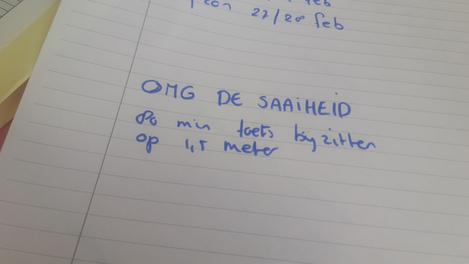 27/28 feb
OMG DE SAAIHEID
80 min toets bijzitten
op 1,5 meter